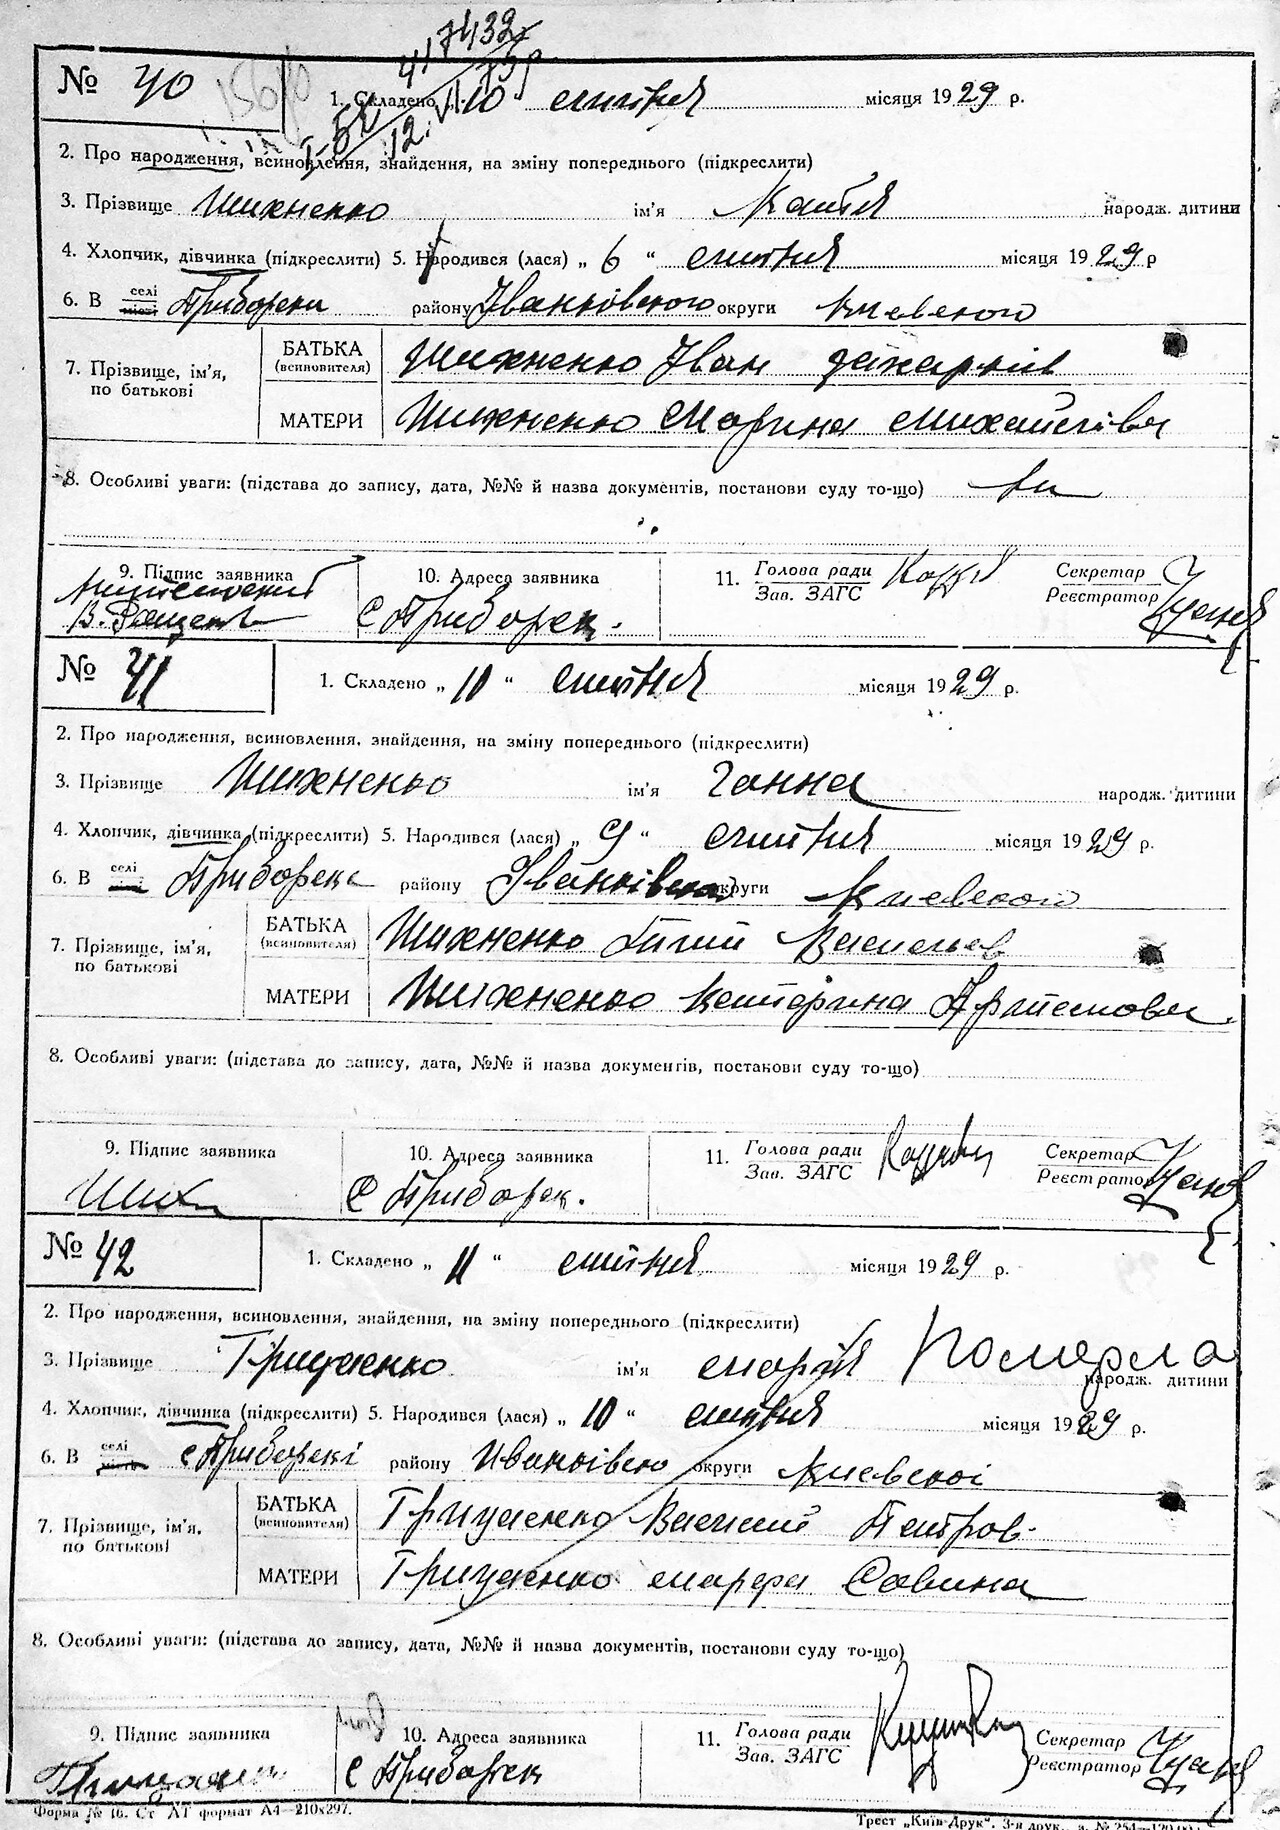 417432
73 р
12. VI
№ 40
1. Складено „ 10 " липня місяця 1929 р.
2. Про народження, всиновлення, знайдення, на зміну попереднього (підкреслити)
3. Прізвище Шихненко ім'я Катя народж. дитини
4. Хлопчик, дівчинка (підкреслити) 5. Народився (лася) „ 6 " липня місяця 1929 р
6. В селі місті Приборськ району Іванківського округи Киевского
7. Прізвище, ім'я, по батькові
БАТЬКА (всиновителя) Шихненко Іван Захарків
МАТЕРИ Шихненко Марина Михайлівна
8. Особливі уваги: (підстава до запису, дата, №№ й назва документів, постанови суду то-що)
9. Підпис заявника 10. Адреса заявника 11. Голова ради Секретар
Зав. ЗАГС Реєстратор
с Приборск.
№ 41
1. Складено „ 11 " липня місяця 1929 р.
2. Про народження, всиновлення, знайдення, на зміну попереднього (підкреслити)
3. Прізвище Шихненко ім'я Ганна народж. дитини
4. Хлопчик, дівчинка (підкреслити) 5. Народився (лася) „ 9 " липня місяця 1929 р.
6. В селі Приборске району Іванківского округи Киевского
7. Прізвище, ім'я, по батькові
БАТЬКА (всиновителя) Шихненко Василев
МАТЕРИ Шихненко Катерина
8. Особливі уваги: (підстава до запису, дата, №№ й назва документів, постанови суду то-що)
9. Підпис заявника 10. Адреса заявника 11. Голова ради Секретар
Зав. ЗАГС Реєстратор
Ших с Приборск.
№ 42
1. Складено „ 11 " липня місяця 1929 р.
2. Про народження, всиновлення, знайдення, на зміну попереднього (підкреслити)
3. Прізвище Грищенко ім'я Марія Померла народж. дитини
4. Хлопчик, дівчинка (підкреслити) 5. Народився (лася) „ 10 " липня місяця 1929 р.
6. В селі місті с Приборскі району Иванківско округи Киевскоі
7. Прізвище, ім'я, по батькові
БАТЬКА (всиновителя) Грищенко Василий Петров
МАТЕРИ Грищенко Марфа Савина
8. Особливі уваги: (підстава до запису, дата, №№ й назва документів, постанови суду то-що)
9. Підпис заявника 10. Адреса заявника 11. Голова ради Секретар
Зав. ЗАГС Реєстратор
с Приборск
Форма № 16. Ст АТ формат А4—210х297. Трест „Київ-Друк". 3-я друк.